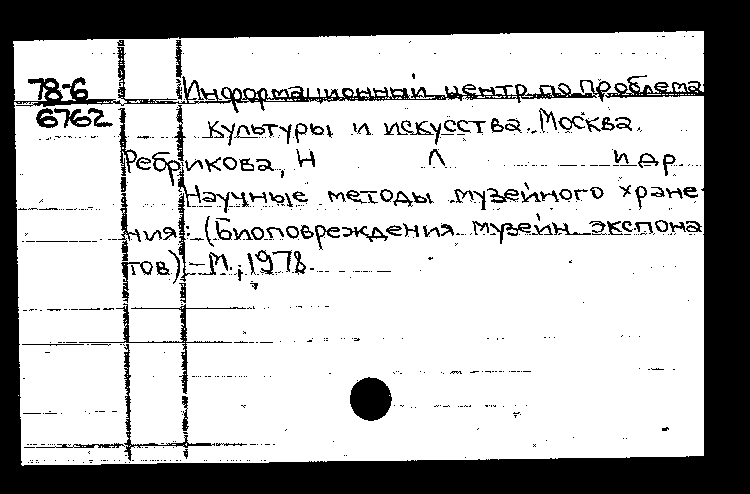 78-6
6762
Информационный центр по проблема
культуры и искусства. Москва.
Ребрикова, Н Л и др
Научные методы музейного хране-
ния: (Биоповреждения музейн. экспона
тов).-М., 1978.